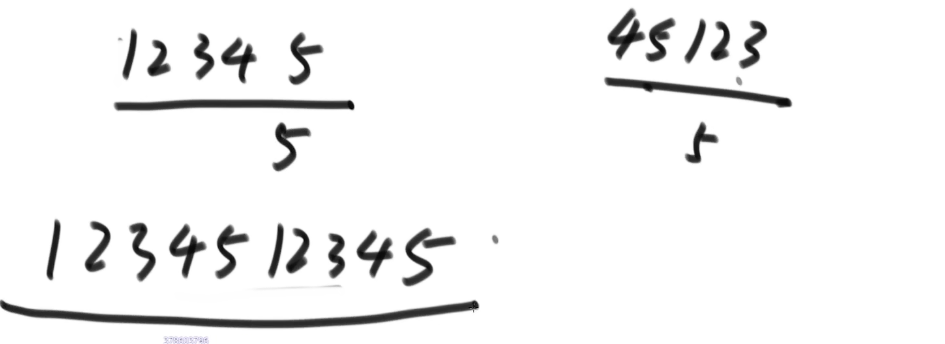 12345
5
45123
5
1234512345